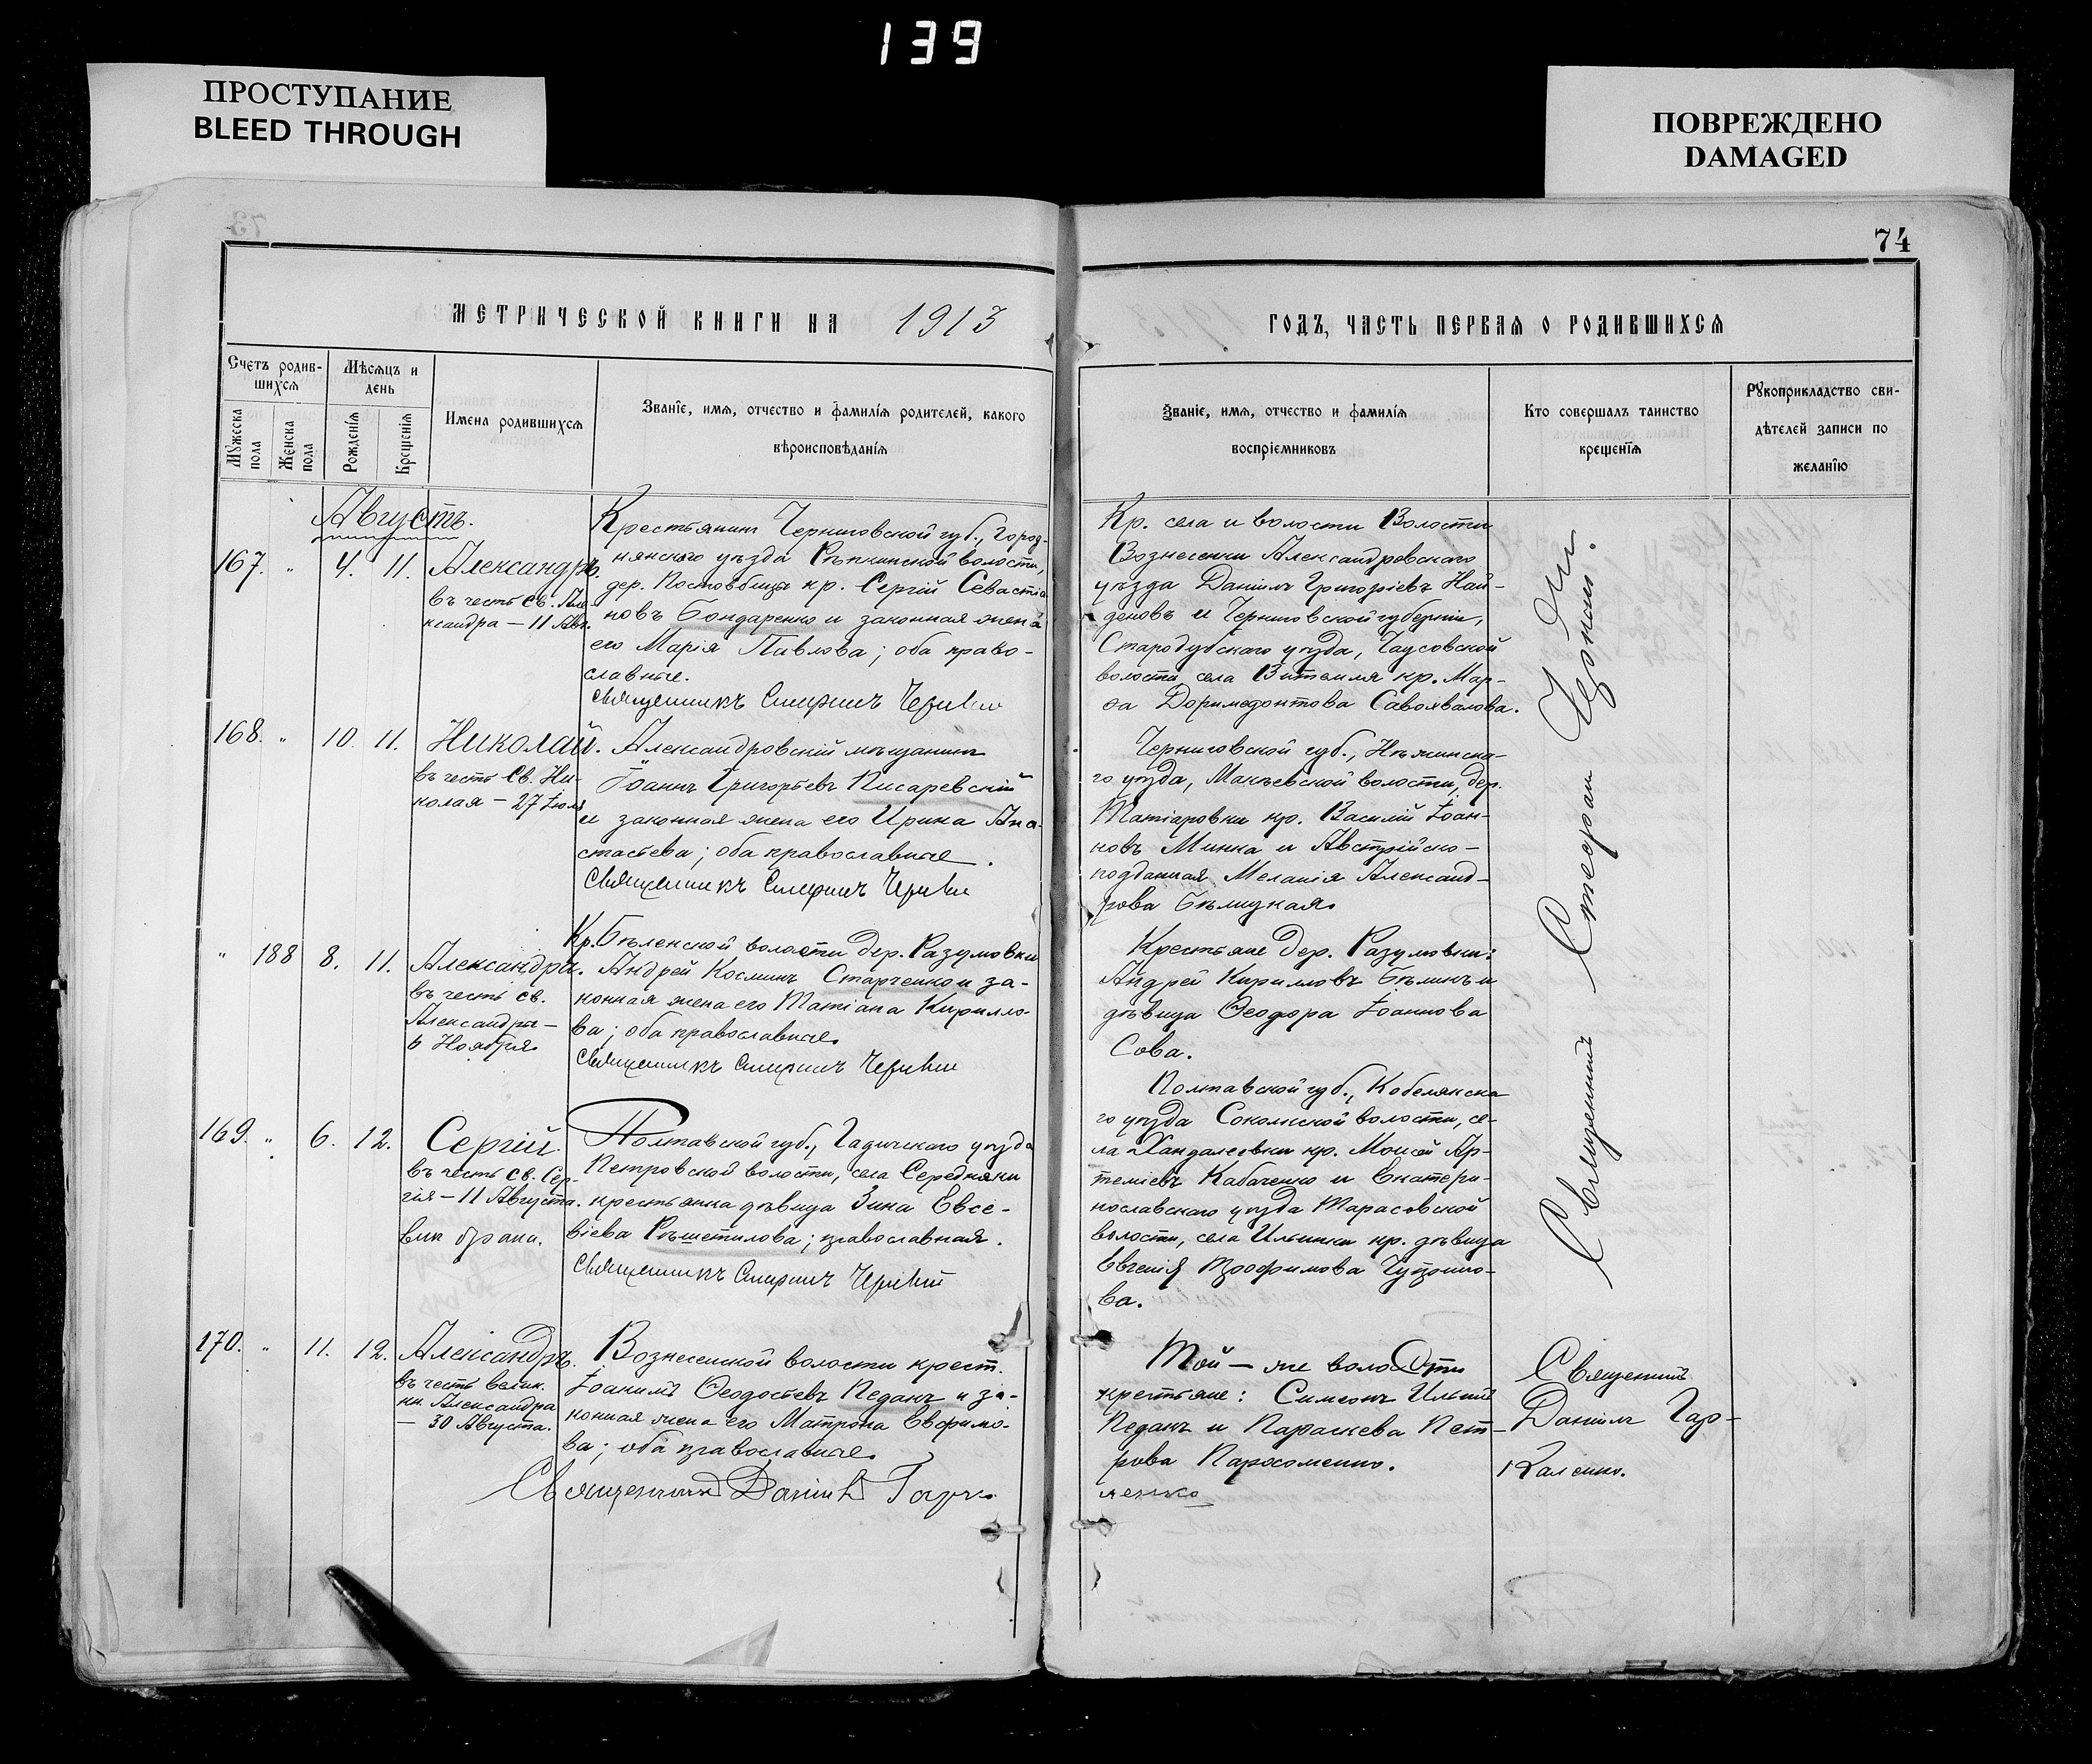 139
ПРОСТУПАНИЕ
BLEED THROUGH
ПОВРЕЖДЕНО
DAMAGED
74
МЕТРИЧЕСКОЙ КНИГИ НА 1913
ГОДЪ, ЧАСТЬ ПЕРВАЯ О РОДИВШИХСЯ
Счетъ родив-
шихся
Мѣсяцъ и
день
Мужеска пола
Женска пола
Рожденія
Крещенія
Имена родившихся
Званіе, имя, отчество и фамилія родителей, какого
вѣроисповѣданія
Званіе, имя, отчество и фамилія
воспріемниковъ
Кто совершалъ таинство
крещенія
Рукоприкладство сви-
дѣтелей записи по
желанію
Августъ.
167. " 4. 11. Александръ.
въ честь св. Але
ксандра — 11 Авг.
Крестьянинъ Черниговской губ., Город-
нянскаго уѣзда Рѣпкинской волости,
дер. кр. Сергій Севастіа
новъ Бондаренко и законная жена
его Марія Павлова; оба право-
славные.
Священникъ
Кр. села и волости Волости
Вознесенки Александровскаго
уѣзда Даніилъ Григоріевъ Най-
деновъ и Черниговской губерніи,
Стародубскаго уѣзда, Чаусовской
волости села Витемля кр. Мар-
ѳа Доримедонтова
168. " 10. 11. Николай.
въ честь св. Ни-
колая — 27 Іюля
Александровскій мѣщанинъ
Іоаннъ Григорьевъ Писаревскій
и законная жена его Ирина Ана-
стасьева; оба православные.
Священникъ
Черниговской губ., Нѣжинска-
го уѣзда, Макѣевской волости, дер.
кр. Василій Іоан-
новъ Минка и Австрійско-
подданная Меланія Александ-
рова Бѣлицкая.
" 188 8. 11. Александра.
въ честь св.
Александры —
6 Ноября.
Кр. Бѣленской волости дер. Разумовки
Андрей Косминъ Старченко и за-
конная жена его Татіана Кирилло-
ва; оба православные.
Священникъ
Крестьяне дер. Разумовки:
Андрей Кирилловъ Бѣликъ и
дѣвица Ѳеодора Іоаннова
Сова.
169. " 6. 12. Сергій.
въ честь св. Сер-
гія — 11 Августа.
внѣ брака.
Полтавской губ., Гадячскаго уѣзда
Петровской волости, села Середняки
крестьянка дѣвица Зина Евсе-
віева Рѣшетилова; православная.
Священникъ
Полтавской губ., Кобелякска
го уѣзда Соколкской волости, се-
ла Хандалеевки кр. Моисей Ар-
теміевъ Кабаченко и Екатери-
нославскаго уѣзда Тарасовской
волости, села Ильинки кр. дѣвица
Евгенія Трофимова
ва.
Священникъ Стефанъ
170. " 11. 12. Александръ.
въ честь велик.
кн. Александра
— 30 Августа.
Вознесенской волости крест.
Іоакимъ Ѳеодосіевъ Педанъ и за-
конная жена его Матрона Евфимо-
ва; оба православные.
Священникъ Даніилъ
Той-же волости
крестьяне: Симеонъ Ильинъ
Педанъ и Параскева Пет-
рова
Священникъ
Даніилъ Гар-
каленко.